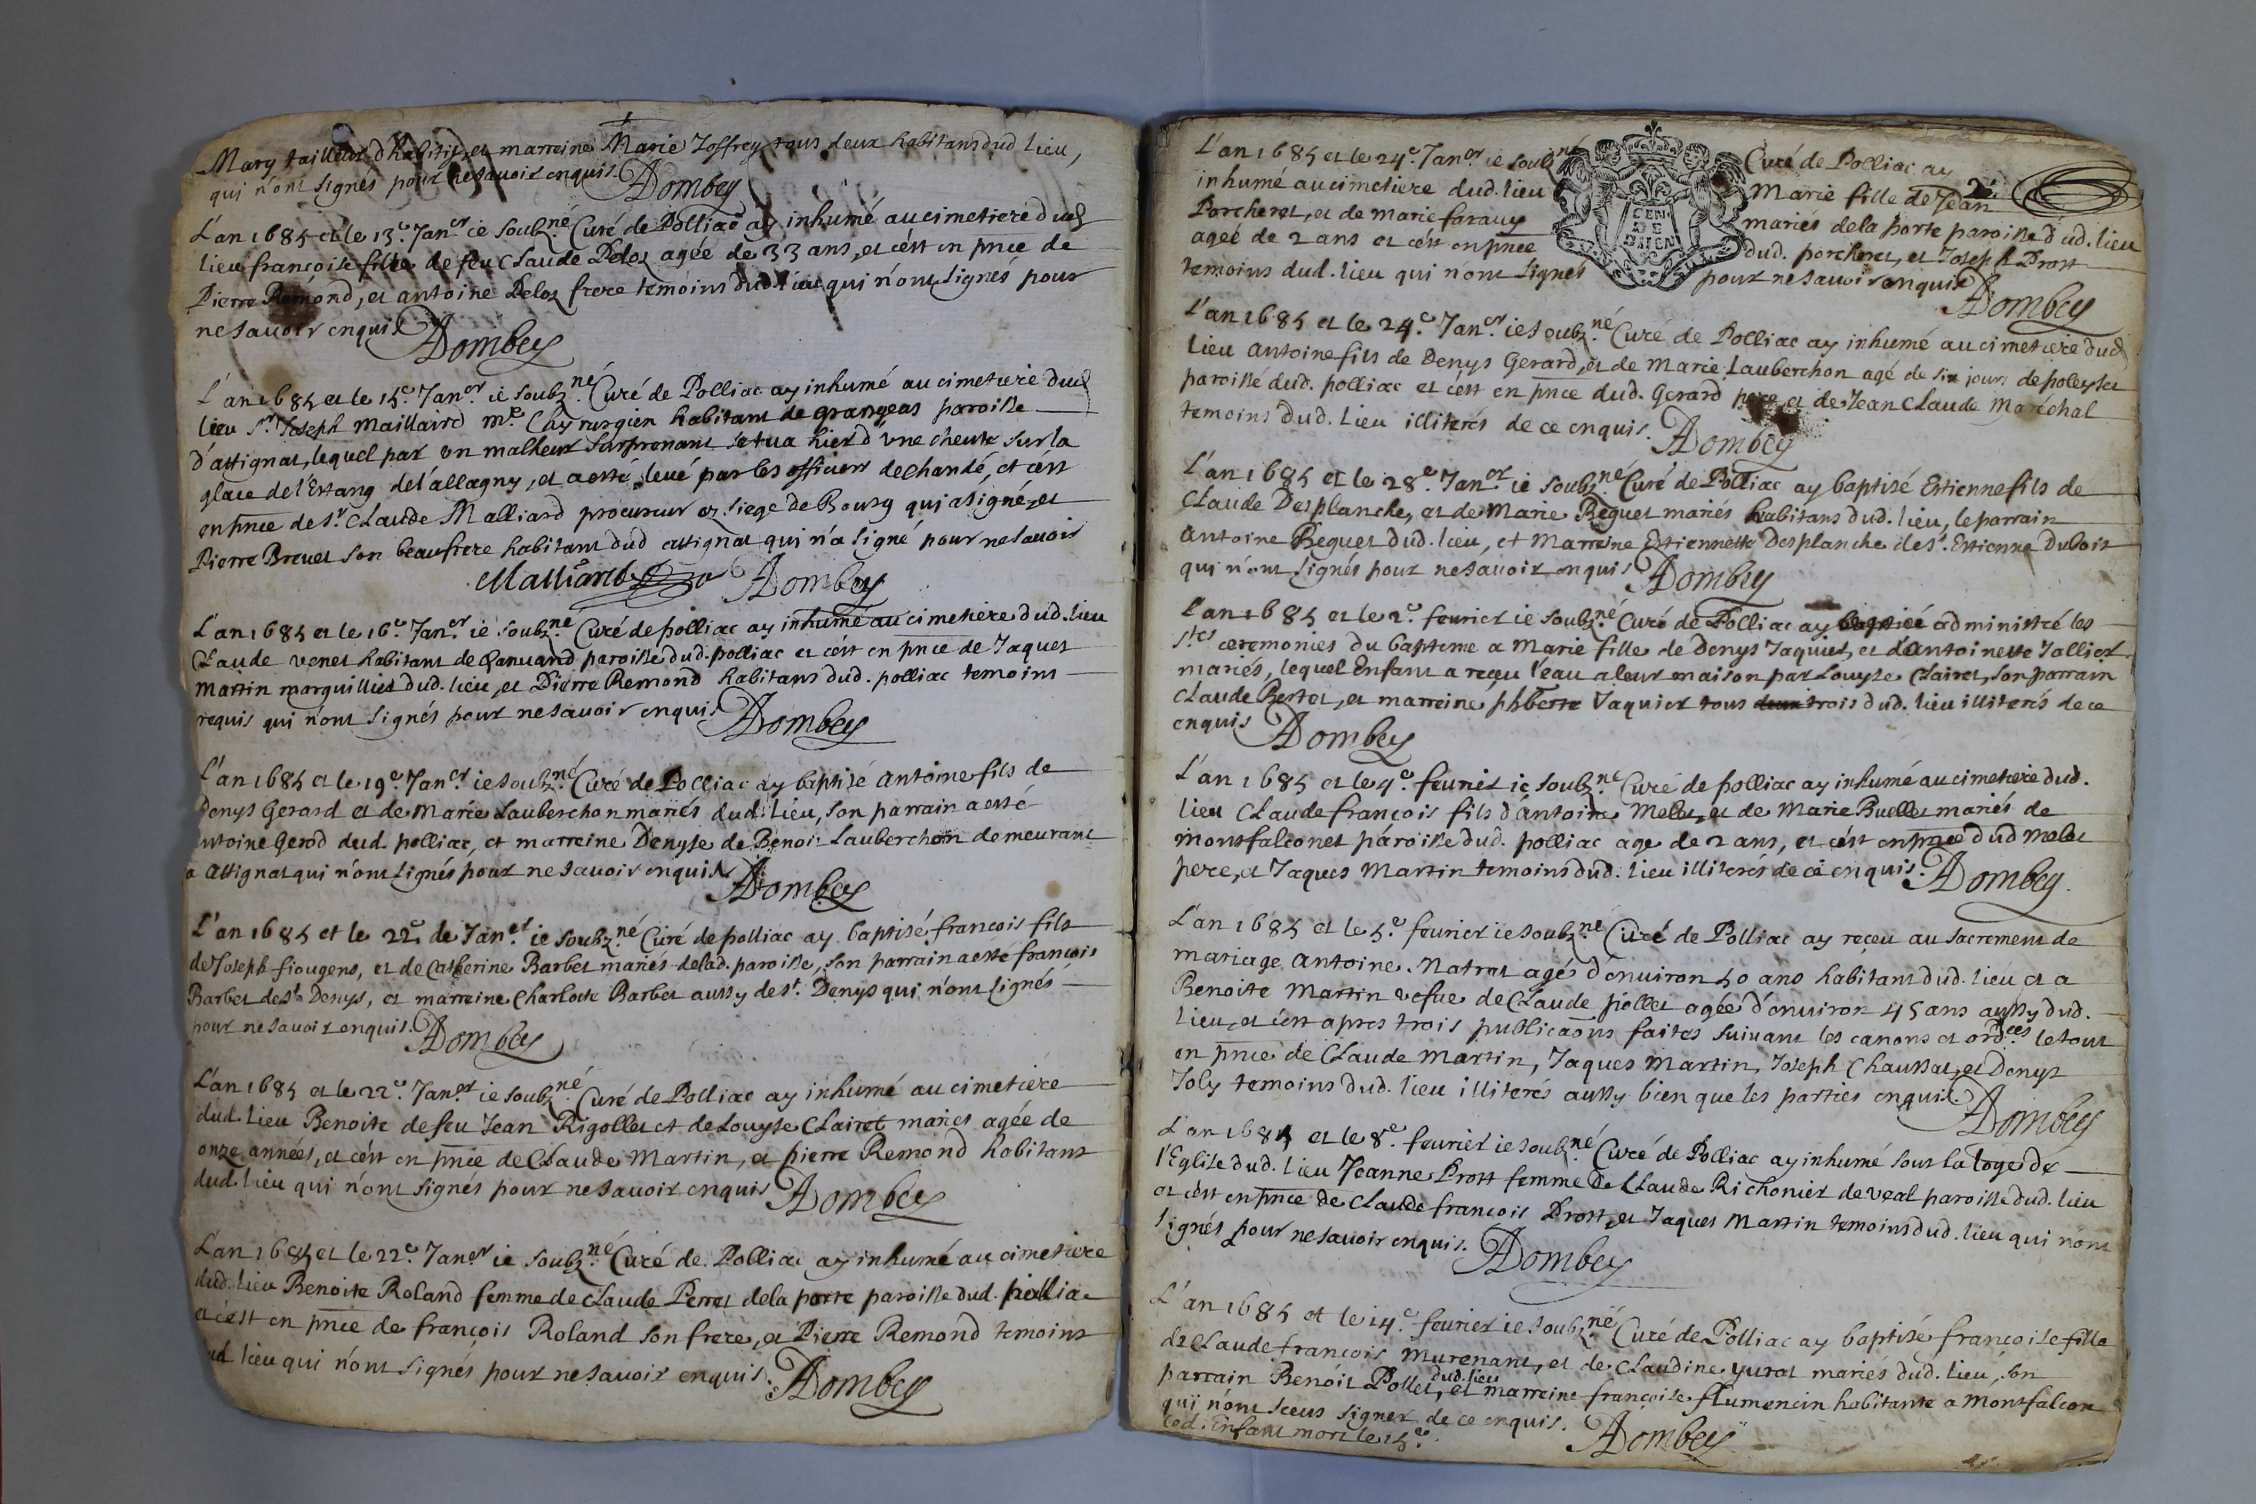 Mary tailleur d'habitz, et marreine Marie Joffrey tous deux habitans dud lieu,
qui n'ont signés pour ne savoir enquis. ADombey
L'an 1685 et le 13.e Jan.er ie soubz.né Curé de Polliac ay inhumé au cimetiere dud
lieu françoise fille de feu Claude Peloz agée de 33 ans, et c'est en pnce de
Pierre Remond, et antoine Peloz frere temoins dud. lieu qui n'ont signés pour
ne savoir enquis ADombey
L'an 1685 et le 15.e Jan.er ie soubz.né Curé de Polliac ay inhumé au cimetiere dud
lieu s.r Joseph Maillaird m.e Chyrurgien habitant de grangeas paroisse
d'attignat, lequel par un malheur surprenant se tua hier d'une cheute sur la
glace de l'Estang de l'allagny, et a esté levé par les officiers de chandé, et c'est
en pnce de s.r Claude Malliard procureur ez siege de Bourg qui a signé, et
Pierre Brevet son beaufrere habitant dud attignat qui n'a signé pour ne savoir
Malliard ADombey
L'an 1685 et le 16.e Jan.er ie soubz.né Curé de polliac ay inhumé au cimetiere dud. lieu
Claude venet habitant de Canuand paroisse dud. polliac et c'est en pnce de Jaques
Martin marguillier dud. lieu, et Pierre Remond habitans dud. polliac temoins
requis qui n'ont signés pour ne savoir enquis ADombey
L'an 1685 et le 19.e Jan.er ie soubz.né Curé de Polliac ay baptisé Antoine fils de
Denys Gerard et de Marie Lauberchon mariés dud. lieu, son parrain a esté
antoine Gerod dud. polliac, et marreine Denyse de Benoit Lauberchon demeurant
a Attignat qui n'ont signés pour ne savoir enquis ADombey
L'an 1685 et le 22.e de Jan.er ie soubz.né Curé de polliac ay baptisé françois fils
de Joseph fiougens, et de Catherine Barbet mariés de lad. paroisse, son parrain a esté françois
Barbet de St. Denys, et marreine Charlotte Barbet aussy de St. Denys qui n'ont signés
pour ne savoir enquis. ADombey
L'an 1685 et le 22.e Jan.er ie soubz.né Curé de Polliac ay inhumé au cimetiere
dud. lieu Benoite de feu Jean Rigollet et de Louyse Clairet mariés agée de
onze années, et c'est en pnce de Claude Martin, et pierre Remond habitans
dud. lieu qui n'ont signés pour ne savoir enquis ADombey
L'an 1685 et le 22.e Jan.er ie soubz.né Curé de Polliac ay inhumé au cimetiere
dud. lieu Benoite Roland femme de Claude Perret de la porte paroisse dud. pollia
et c'est en pnce de françois Roland son frere, et Pierre Remond temoins
ud. lieu qui n'ont signés pour ne savoir enquis. ADombey
L'an 1685 et le 24.e Jan.er ie soubz.né Curé de Polliac ay
inhumé au cimetiere dud. lieu Marie fille de Jean
Porcheret, et de Marie faraux mariés de la porte paroisse dud. lieu
agée de 2 ans et c'est en pnce dud. porcheret, et Joseph Prost
temoins dud. lieu qui n'ont signés pour ne savoir enquis ADombey
GEN
DE
DIJON
2
L'an 1685 et le 24.e Jan.er ie soubz.né Curé de Polliac ay inhumé au cimetiere dud
lieu Antoine fils de Denys Gerard, et de Marie Lauberchon agé de six jours de poleyset
paroisse dud. polliac et c'est en pnce dud. Gerard pere, et de Jean Claude Marêchal
temoins dud. lieu illiterés de ce enquis. ADombey
L'an 1685 et le 28.e Jan.er ie soubz.né Curé de Polliac ay baptisé Estienne fils de
Claude Desplanche, et de Marie Bequet mariés habitans dud. lieu, le parrain
Antoine Bequet dud. lieu, et Marreine Estiennette Desplanche de St. Estienne Dubois
qui n'ont signés pour ne savoir enquis ADombey
L'an 1685 et le 2.e fevrier ie soubz.né Curé de Polliac ay baptisé administré les
S.tes ceremonies du bapteme a Marie fille de Denys Jaquier, et d'antoinette Jallier
mariés, lequel Enfant a reçeu l'eau a leur maison par Louyse Clairet, son parrain
Claude Bertet, et marreine phberte Vaquier tous deux trois dud. lieu illiterés de ce
enquis ADombey
L'an 1685 et le 4.e fevrier ie soubz.né Curé de polliac ay inhumé au cimetiere dud.
lieu Claude françois fils d'Antoine Melet, et de Marie Buellet mariés de
montfalconet paroisse dud. polliac agé de 2 ans, et c'est en pnce dud Melet
pere, et Jaques Martin temoins dud. lieu illiterés de ce enquis. ADombey.
L'an 1685 et le 5.e fevrier ie soubz.né Curé de Polliac ay reçeu au sacrement de
mariage Antoine Natrat agé d'environ 50 ans habitant dud. lieu et a
Benoite Martin vefue de Claude pollet agée d'environ 45 ans aussy dud.
lieu, et c'est apres trois publicaons faites suivant les canons et ord.ces le tout
en pnce de Claude Martin, Jaques Martin, Joseph Chaussat, et Denys
Joly temoins dud. lieu illiterés aussy bien que les parties enquis. ADombey
L'an 1685 et le 8.e fevrier ie soubz.né Curé de Polliac ay inhumé sous la loge de
l'Eglise dud. lieu Jeanne Prost femme de Claude Richonier de veal paroisse dud. lieu
et c'est en pnce de Claude françois Prost, et Jaques Martin temoins dud. lieu qui n'ont
signés pour ne savoir enquis. ADombey
L'an 1685 et le 14.e fevrier ie soubz.né Curé de Polliac ay baptisé françoise fille
de Claude françois Murenant, et de Claudine yurat mariés dud. lieu, son
parrain Benoit Pollet, dud. lieu et marreine françoise flumencin habitante a Montfalcon
qui n'ont sceus signer de ce enquis. ADombey
led. Enfant mort le 15.e